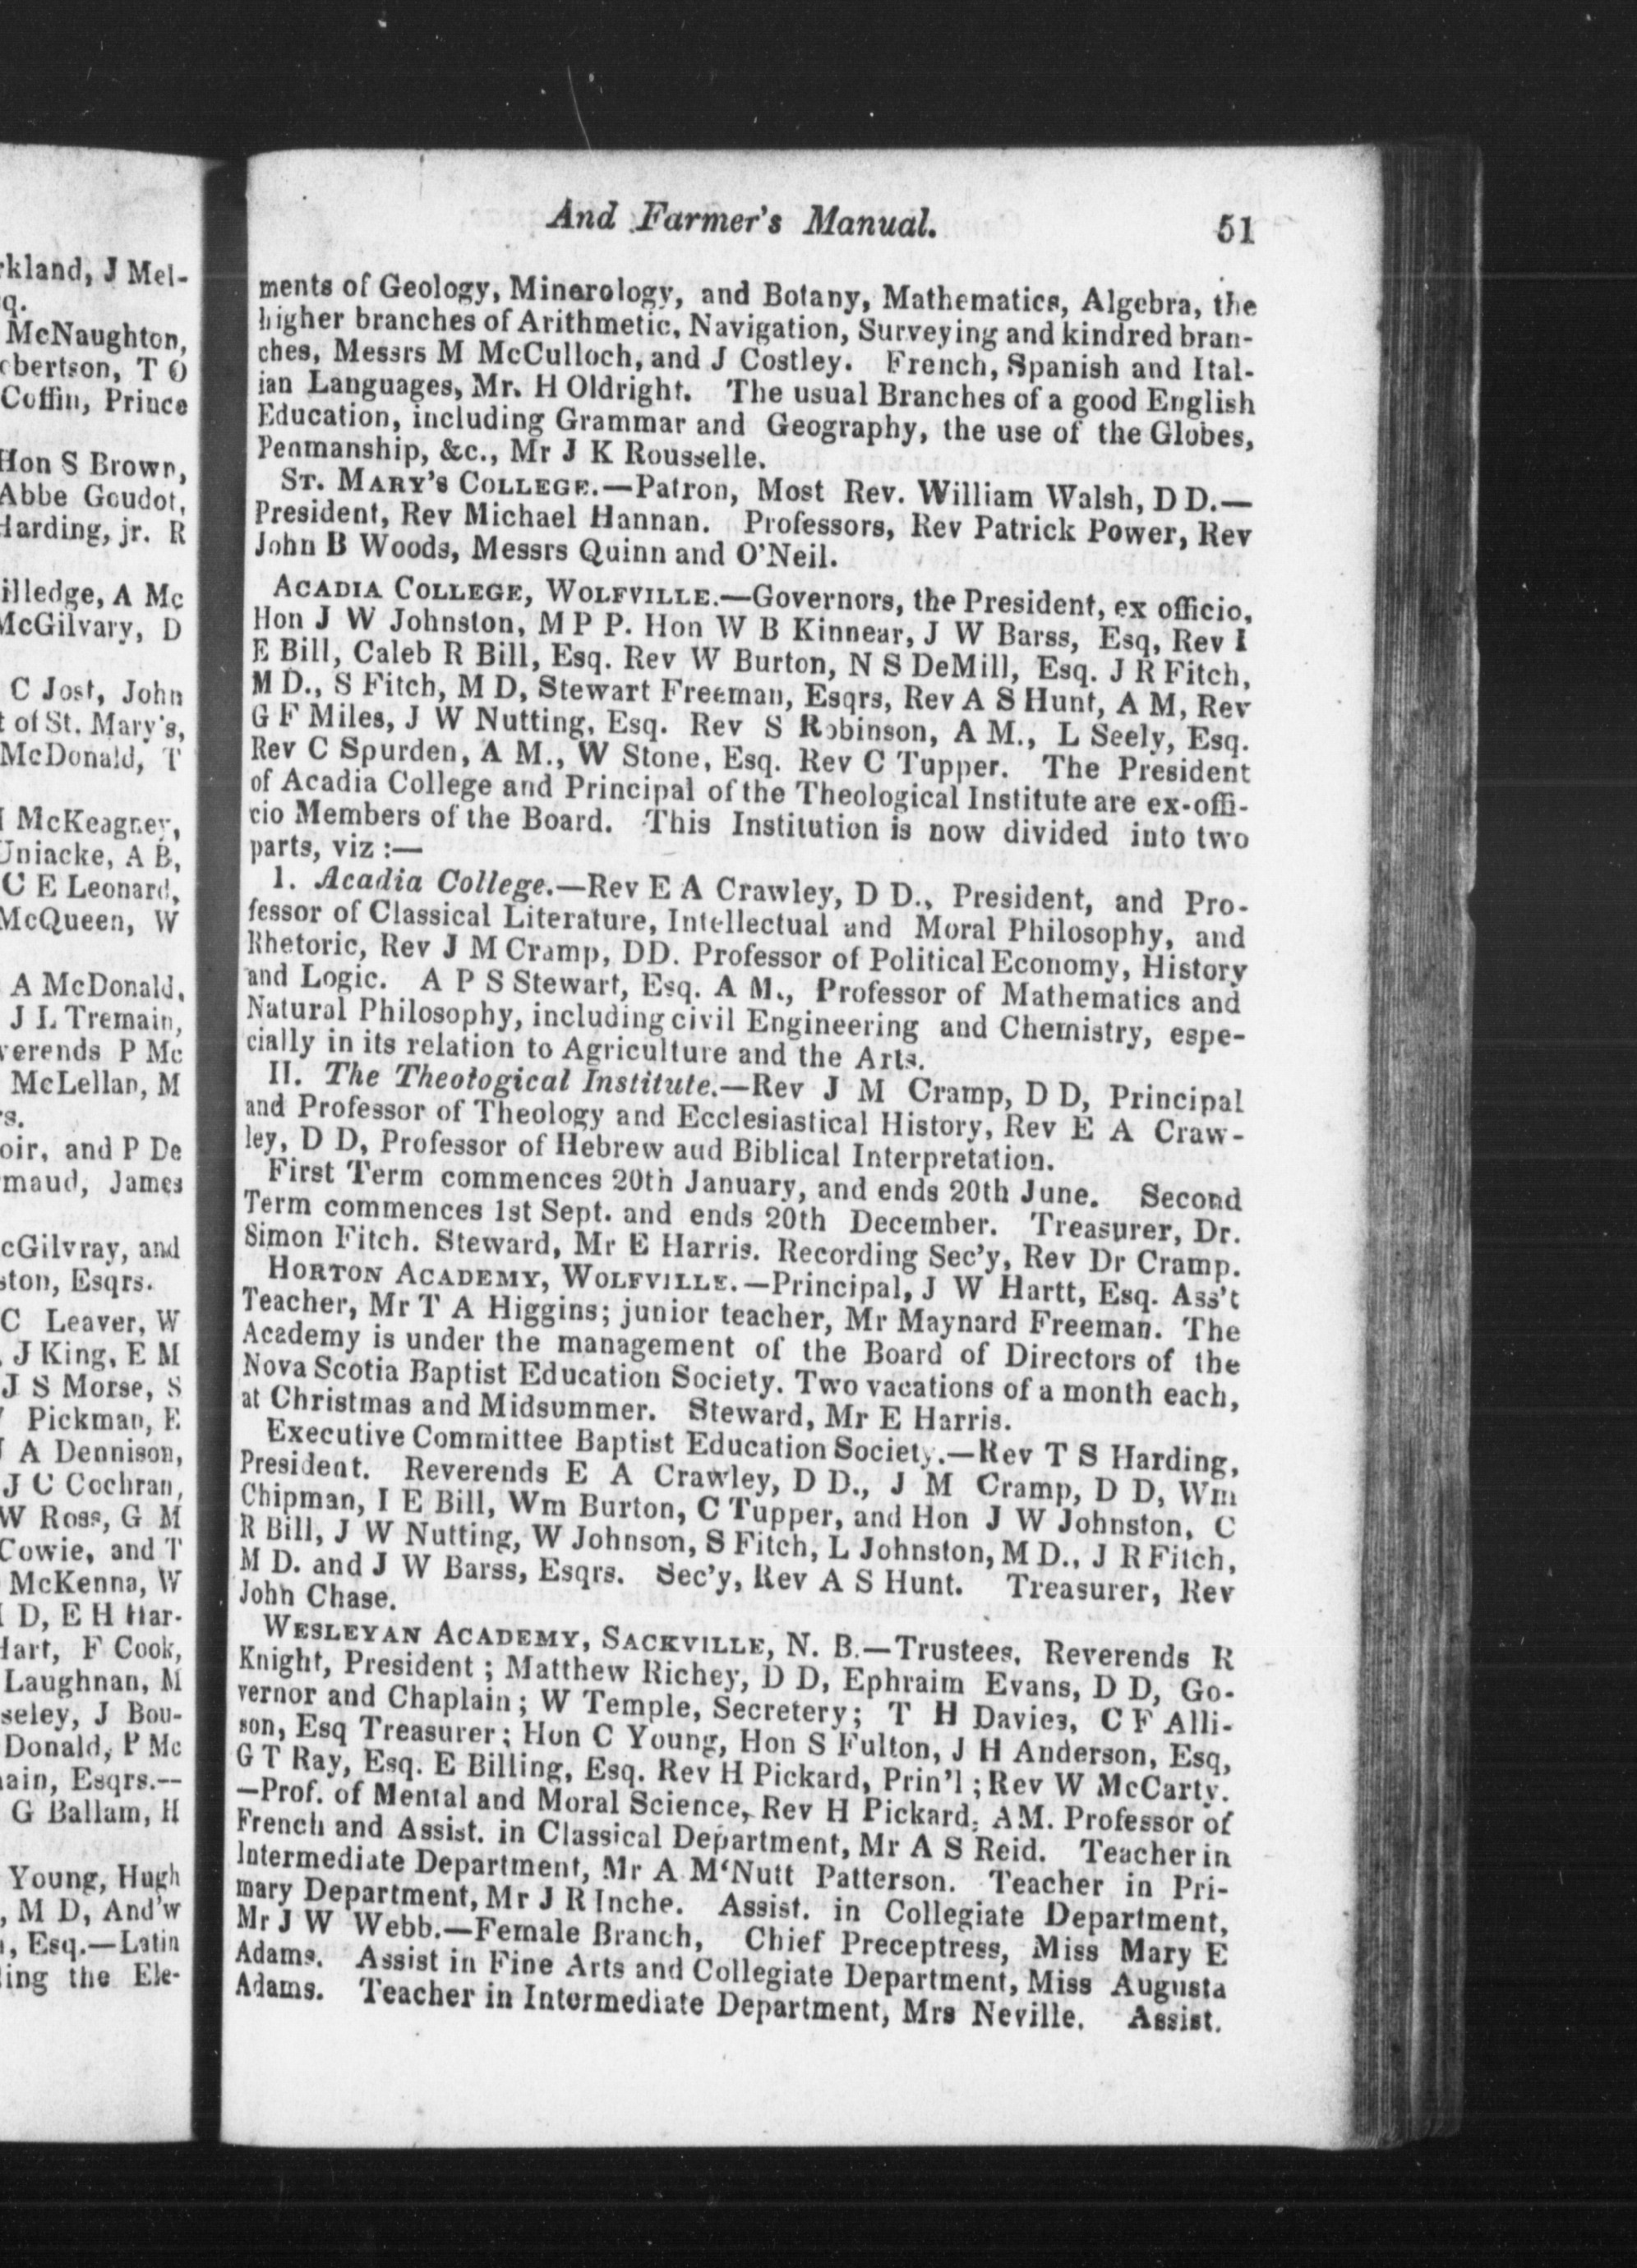 rkland, J Mel-
q.
McNaughton,
obertson, T O
Coffin, Prince
Hon S Brown,
Abbe Goudot,
Harding, jr. R
illedge, A Mc
McGilvary, D
C Jost, John
t of St. Mary's,
McDonald, T
McKeagney,
Uniacke, A B,
C E Leonard,
McQueen, W
A McDonald,
J L Tremain,
verends P Mc
McLellan, M
rs.
oir, and P De
maud, James
cGilvray, and
ston, Esqrs.
C Leaver, W
J King, E M
J S Morse, S
Pickman, E
A Dennison,
J C Cochran,
W Ross, G M
Cowie, and T
McKenna, W
D, E H Har-
Hart, F Cook,
Laughnan, M
seley, J Bou-
Donald, P Mc
ain, Esqrs.--
G Ballam, H
Young, Hugh
, M D, And'w
, Esq.—Latin
ling the Ele-
And Farmer's Manual. 51
ments of Geology, Minerology, and Botany, Mathematics, Algebra, the
higher branches of Arithmetic, Navigation, Surveying and kindred bran-
ches, Messrs M McCulloch, and J Costley. French, Spanish and Ital-
ian Languages, Mr. H Oldright. The usual Branches of a good English
Education, including Grammar and Geography, the use of the Globes,
Penmanship, &c., Mr J K Rousselle.
ST. MARY'S COLLEGE.—Patron, Most Rev. William Walsh, D D.—
President, Rev Michael Hannan. Professors, Rev Patrick Power, Rev
John B Woods, Messrs Quinn and O'Neil.
ACADIA COLLEGE, WOLFVILLE.—Governors, the President, ex officio,
Hon J W Johnston, M P P. Hon W B Kinnear, J W Barss, Esq, Rev I
E Bill, Caleb R Bill, Esq. Rev W Burton, N S DeMill, Esq. J R Fitch,
M D., S Fitch, M D, Stewart Freeman, Esqrs, Rev A S Hunt, A M, Rev
G F Miles, J W Nutting, Esq. Rev S Robinson, A M., L Seely, Esq.
Rev C Spurden, A M., W Stone, Esq. Rev C Tupper. The President
of Acadia College and Principal of the Theological Institute are ex-offi-
cio Members of the Board. This Institution is now divided into two
parts, viz :—
1. Acadia College.—Rev E A Crawley, D D., President, and Pro-
fessor of Classical Literature, Intellectual and Moral Philosophy, and
Rhetoric, Rev J M Cramp, DD. Professor of Political Economy, History
and Logic. A P S Stewart, Esq. A M., Professor of Mathematics and
Natural Philosophy, including civil Engineering and Chemistry, espe-
cially in its relation to Agriculture and the Arts.
II. The Theological Institute.—Rev J M Cramp, D D, Principal
and Professor of Theology and Ecclesiastical History, Rev E A Craw-
ley, D D, Professor of Hebrew aud Biblical Interpretation.
First Term commences 20th January, and ends 20th June. Second
Term commences 1st Sept. and ends 20th December. Treasurer, Dr.
Simon Fitch. Steward, Mr E Harris. Recording Sec'y, Rev Dr Cramp.
HORTON ACADEMY, WOLFVILLE.—Principal, J W Hartt, Esq. Ass't
Teacher, Mr T A Higgins; junior teacher, Mr Maynard Freeman. The
Academy is under the management of the Board of Directors of the
Nova Scotia Baptist Education Society. Two vacations of a month each,
at Christmas and Midsummer. Steward, Mr E Harris.
Executive Committee Baptist Education Society.—Rev T S Harding,
President. Reverends E A Crawley, D D., J M Cramp, D D, Wm
Chipman, I E Bill, Wm Burton, C Tupper, and Hon J W Johnston, C
R Bill, J W Nutting, W Johnson, S Fitch, L Johnston, M D., J R Fitch,
M D. and J W Barss, Esqrs. Sec'y, Rev A S Hunt. Treasurer, Rev
John Chase.
WESLEYAN ACADEMY, SACKVILLE, N. B.—Trustees, Reverends R
Knight, President ; Matthew Richey, D D, Ephraim Evans, D D, Go-
vernor and Chaplain ; W Temple, Secretery; T H Davies, C F Alli-
son, Esq Treasurer ; Hon C Young, Hon S Fulton, J H Anderson, Esq,
G T Ray, Esq. E Billing, Esq. Rev H Pickard, Prin'l ; Rev W McCarty.
—Prof. of Mental and Moral Science, Rev H Pickard, AM. Professor of
French and Assist. in Classical Department, Mr A S Reid. Teacher in
Intermediate Department, Mr A M'Nutt Patterson. Teacher in Pri-
mary Department, Mr J R Inche. Assist. in Collegiate Department,
Mr J W Webb.—Female Branch, Chief Preceptress, Miss Mary E
Adams. Assist in Fine Arts and Collegiate Department, Miss Augusta
Adams. Teacher in Intermediate Department, Mrs Neville. Assist.